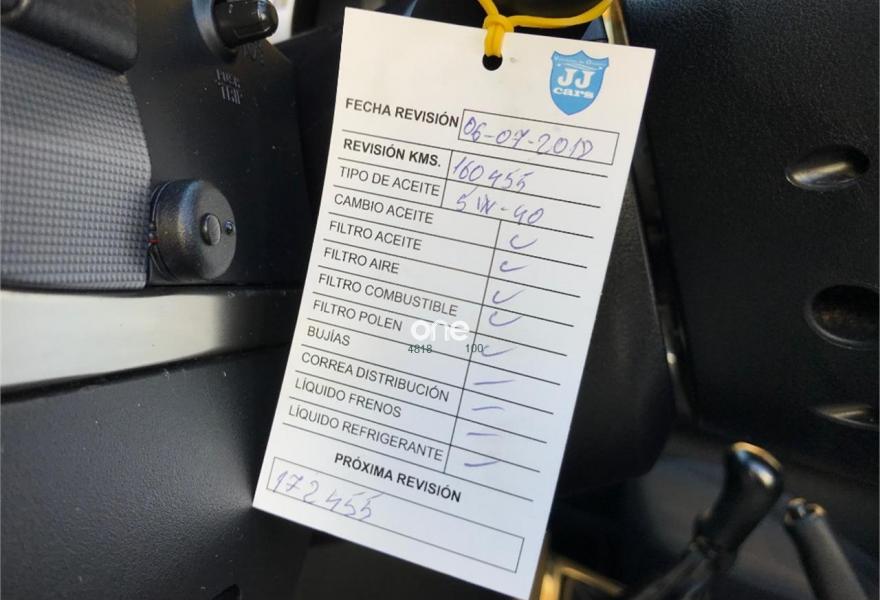 JJ
cars
FECHA REVISIÓN 06-07-2018
REVISIÓN KMS. 160455
TIPO DE ACEITE 5W-40
CAMBIO ACEITE
FILTRO ACEITE
FILTRO AIRE
FILTRO COMBUSTIBLE
FILTRO POLEN
BUJÍAS
CORREA DISTRIBUCIÓN
LÍQUIDO FRENOS
LÍQUIDO REFRIGERANTE
PRÓXIMA REVISIÓN
172455
one
4818 100
TRIP